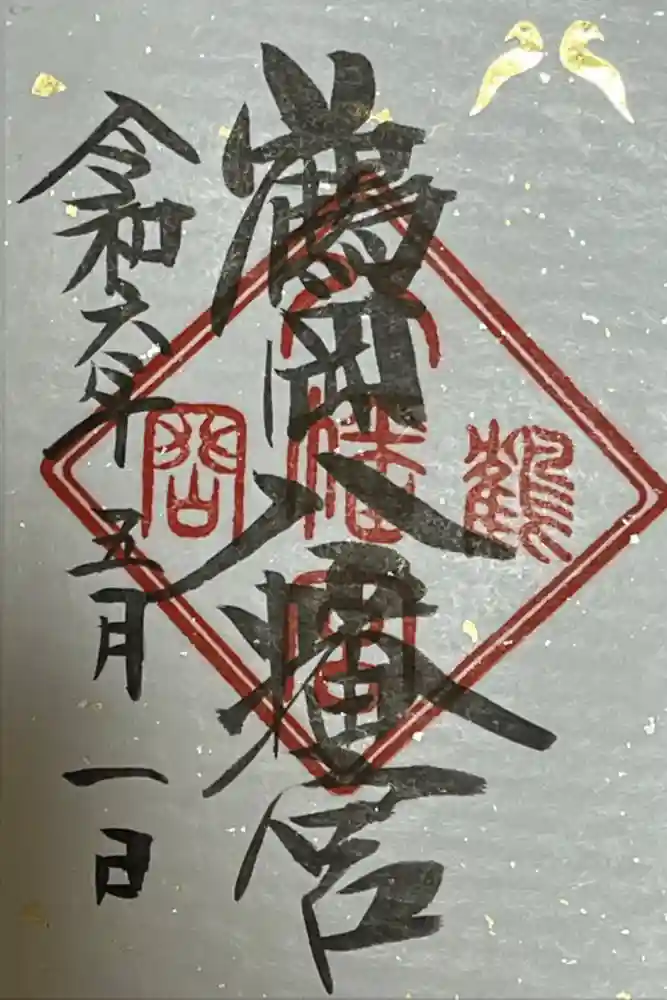 鶴岡八幡宮
令和六年 五月 一日
鶴
岡
八
幡
宮